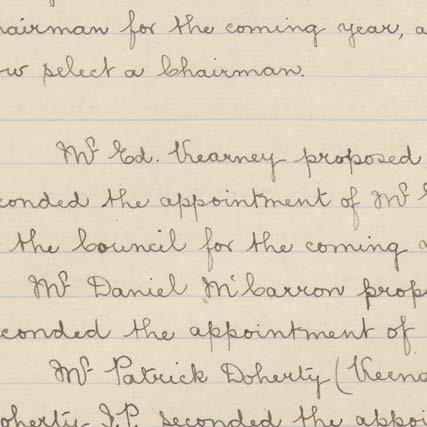 hairman for the coming year, a
ow select a Chairman.
Mr Ed. Kearney proposed
conded the appointment of Mr
the Council for the coming
Mr Daniel McCarron prop
econded the appointment of
Mr Patrick Doherty (Keena
oherty, J.P. seconded the appoi